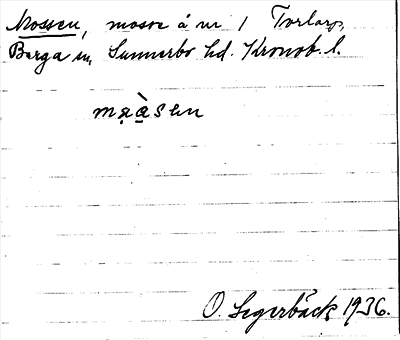 Mossen, mosse å nr 1 Torlarp,
Berga sn, Sunnerbo hd. Kronob. l.
mạ̀sen
O. Segerbäck 1936.